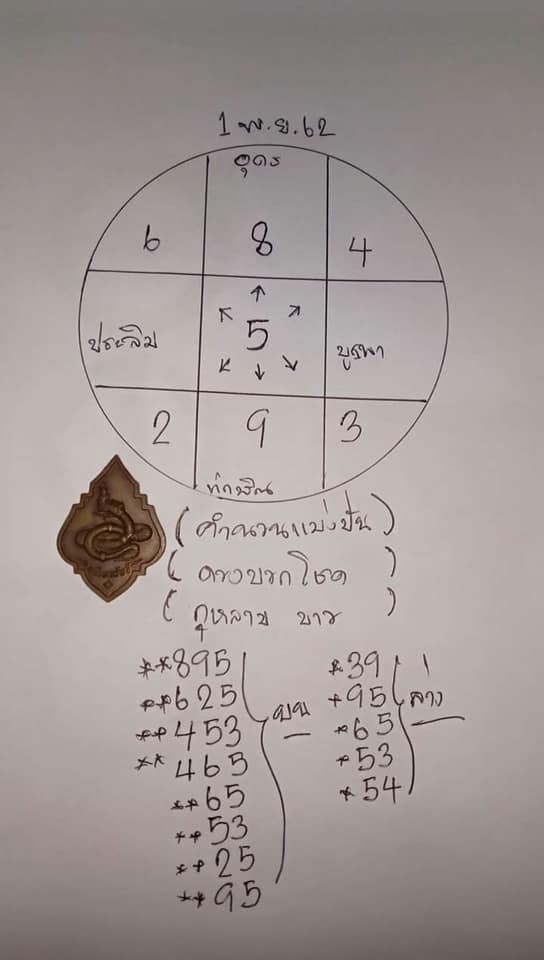 1 พ.ย.62
อุดร
6 8 4
5
ประจิม
บูรพา
2 9 3
ทักษิณ
(คำนวนแบ่งปัน)
(ดวงบอกโชค)
(กุหลาบ ขาว)
**895
**625
**453
**465
**65
**53
**25
**95
บน
*39
*95
*65
*53
*54
ล่าง